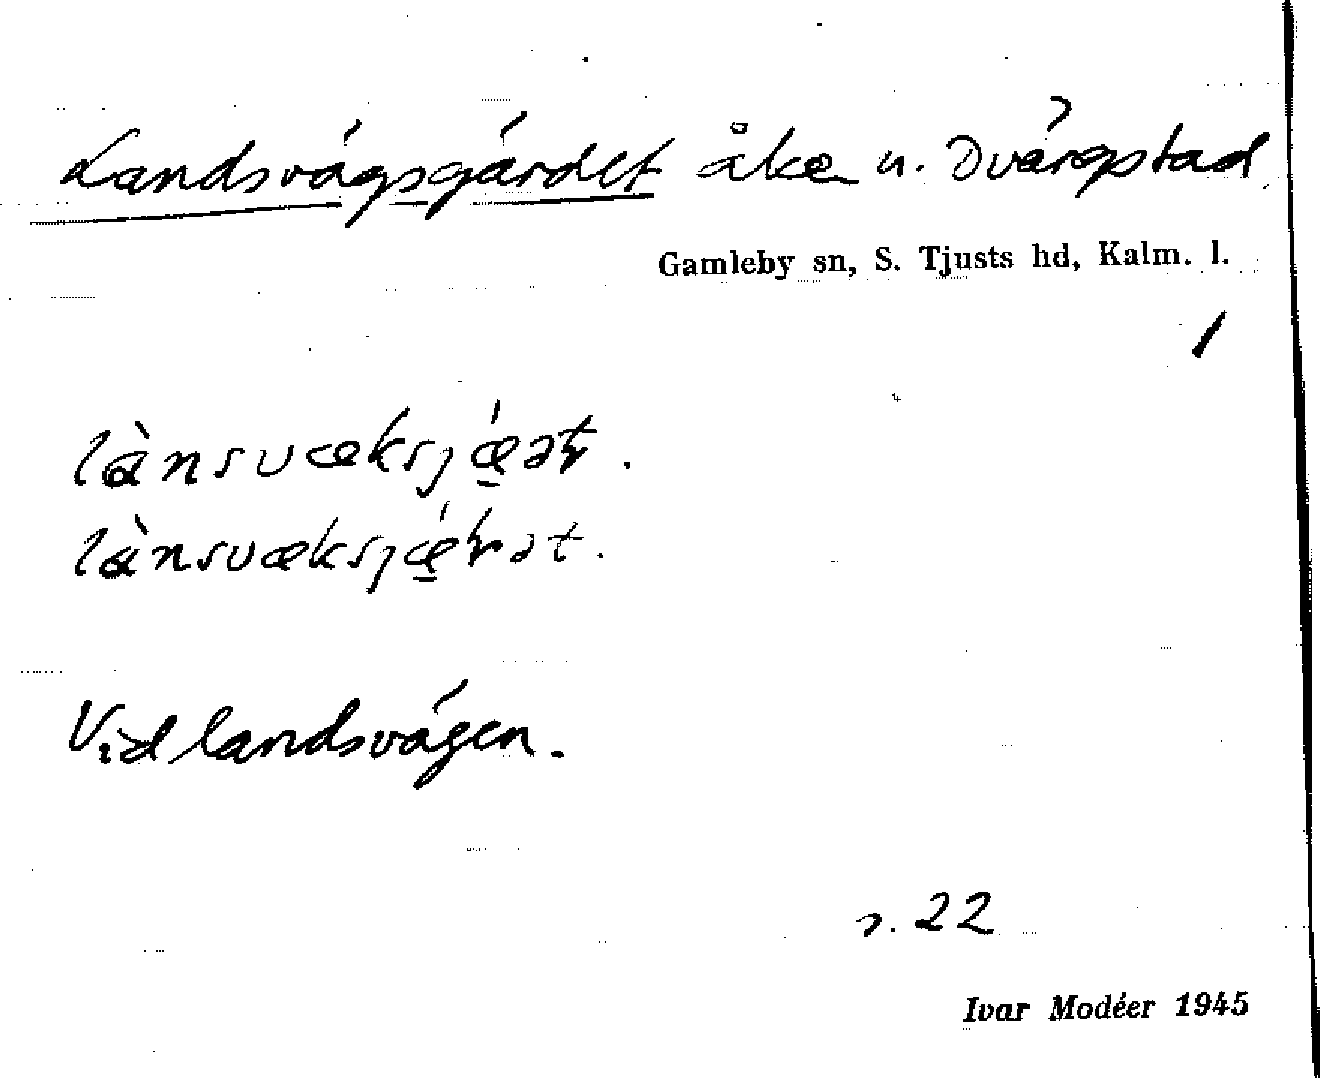 Landsvägsgärdet åker u. Dvärgstad
Gamleby sn, S. Tjusts hd, Kalm. l.
1
lànsvæksjǽ̠ət.
lànsvæksjǽ̠kət.
Vid landsvägen.
s. 22
Ivar Modéer 1945